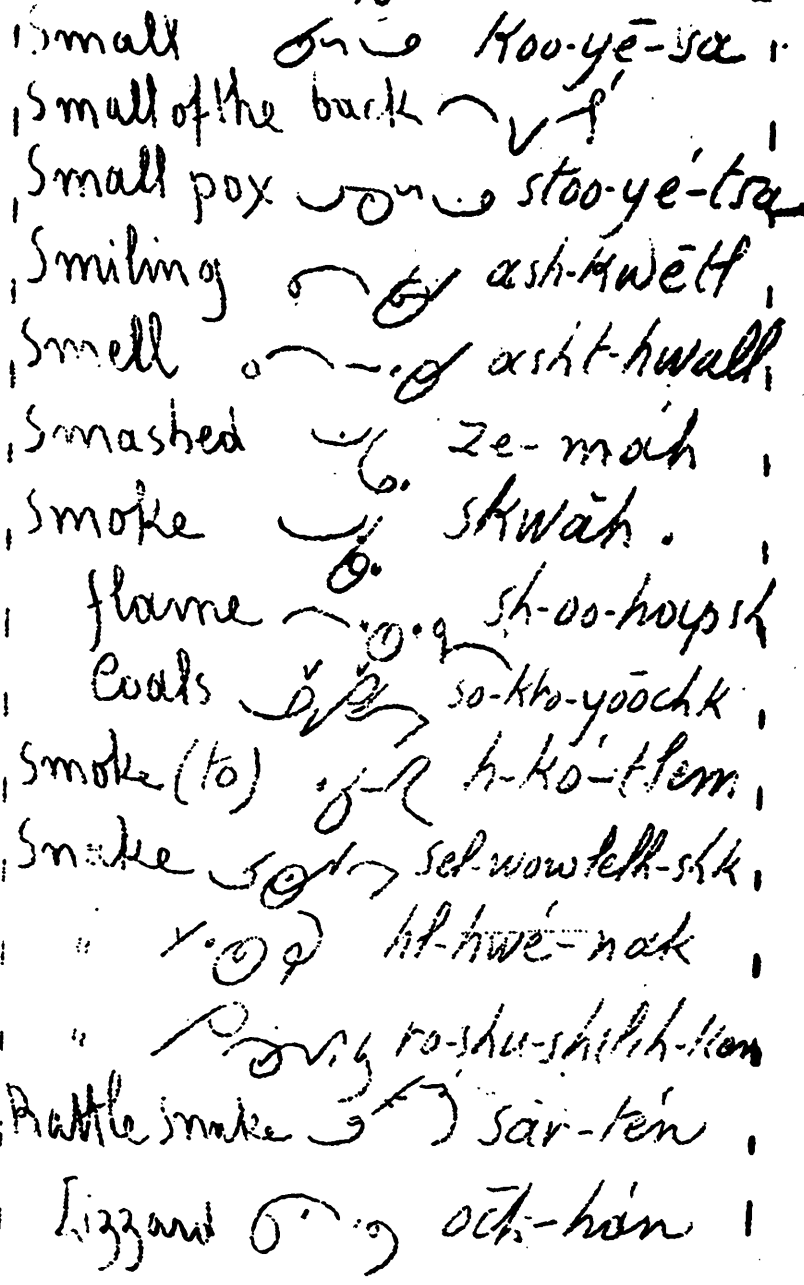 Small Koo-yē-sa
Small of the back
Small pox stoo-yé-tsa
Smiling ash-Kwētl
Smell asht-hwall
Smashed ze-máh
Smoke skwāh.
flame sh-oo-hoypsh
Coals so-kro-yōōchk
Smoke (to) h-kó-tlem
Snake sel-wowlelh-shk
" hl-hwé-nak
" ro-shu-shilih-Kan
Rattle snake sár-tén
Lizzard ōch-hán